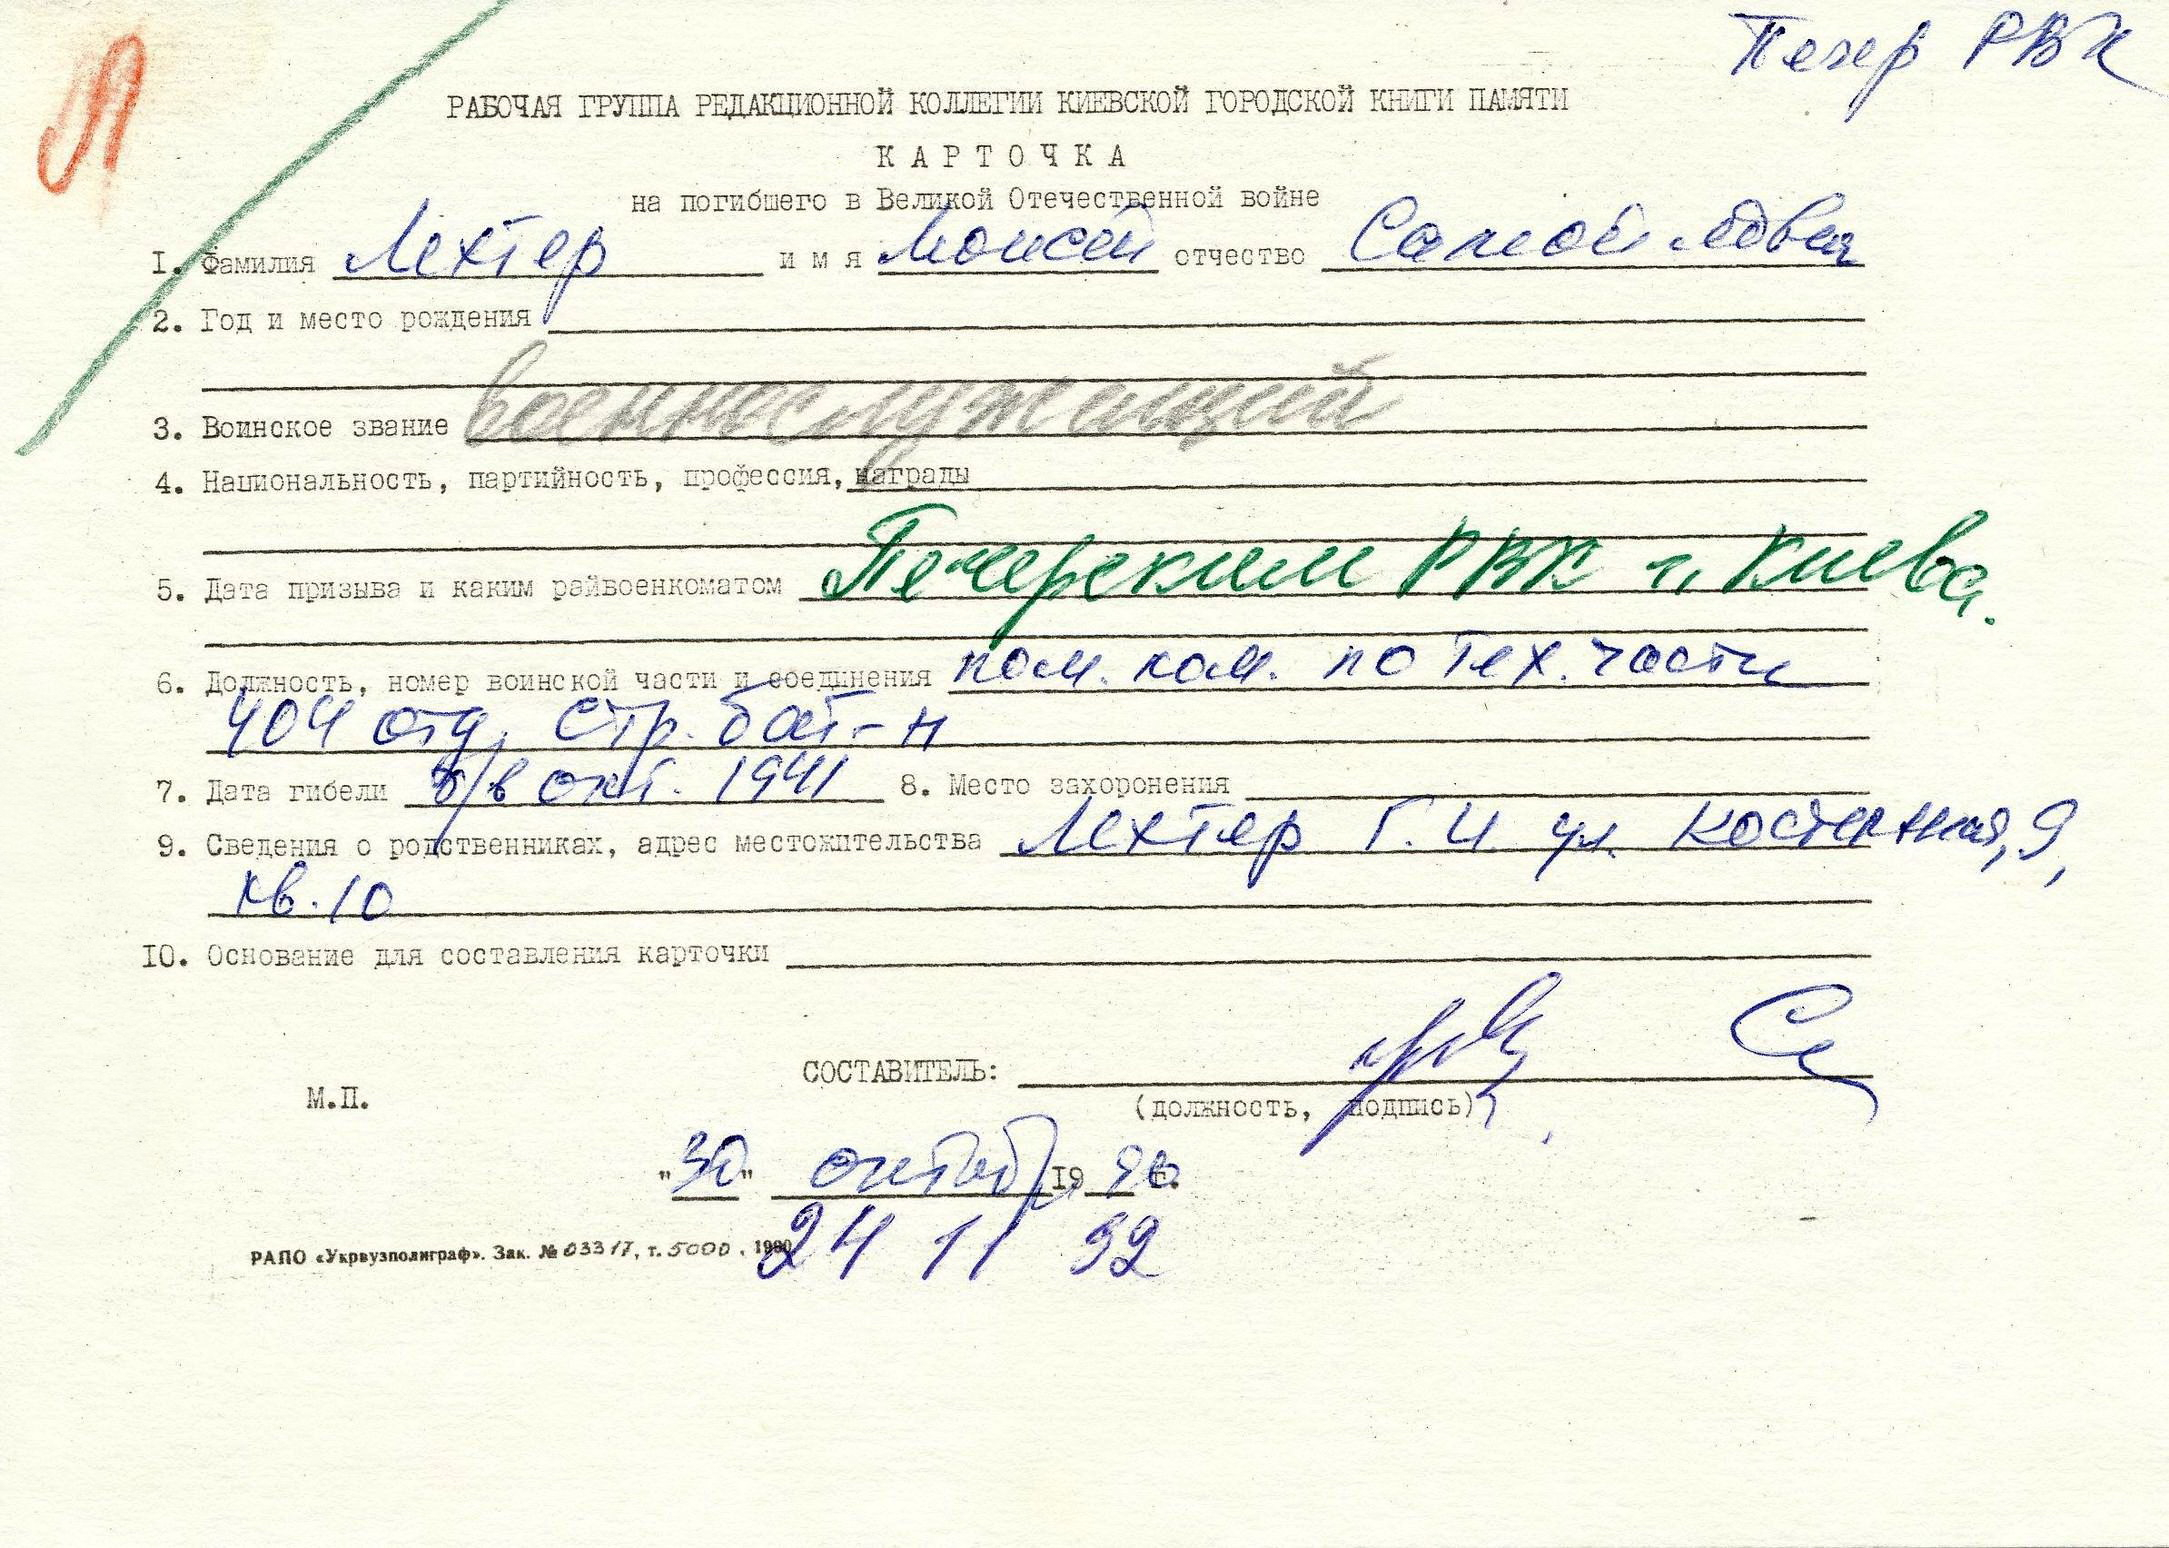 Л
Печер РВК
РАБОЧАЯ ГРУППА РЕДАКЦИОННОЙ КОЛЛЕГИИ КИЕВСКОЙ ГОРОДСКОЙ КНИГИ ПАМЯТИ
КАРТОЧКА
на погибшего в Великой Отечественной войне
I. Фамилия Лехтер имя Моисей отчество Самойлович
2. Год и место рождения
3. Воинское звание военнослужащий
4. Национальность, партийность, профессия, награды
5. Дата призыва и каким райвоенкоматом Печерским РВК г. Киева.
6. Должность, номер воинской части и соединения пом. ком. по тех. части
404 отд. стр. бат-н
7. Дата гибели б/в окт. 1941 8. Место захоронения
9. Сведения о родственниках, адрес местожительства Лехтер Г.И. ул. Костельная, 9,
кв. 10
10. Основание для составления карточки
СОСТАВИТЕЛЬ:
М.П. (должность, подпись)
"30" октяб 19 90 г.
24 11 92
РАПО «Укрвузполиграф». Зак. № 03317, т. 5000, 1990